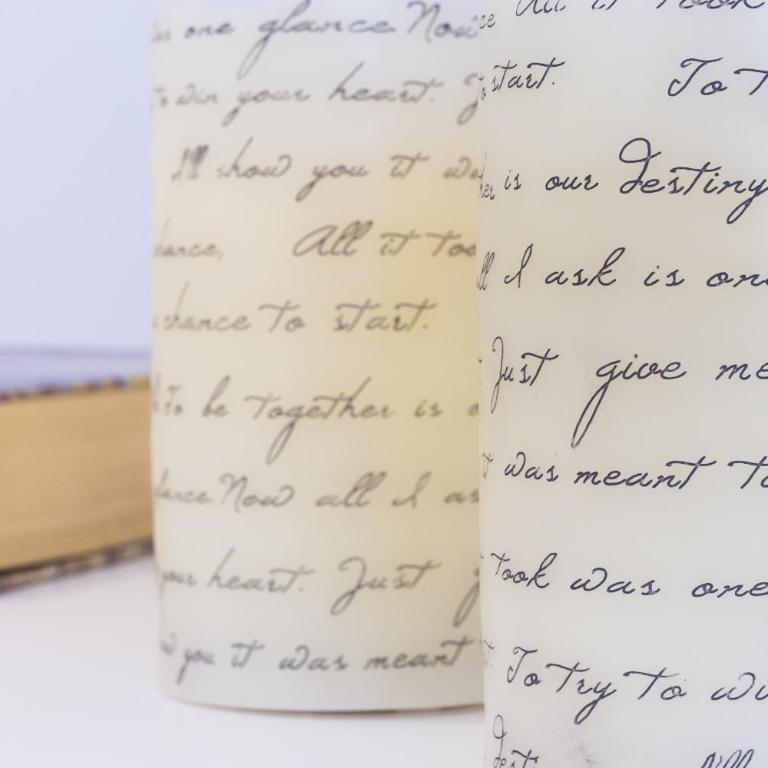 one glance Now
To win your heart.
I'll show you it
All it
chance to start.
to be together is
Now all I
your heart. Just
you it was meant
All it took
start. To
is our destiny
I ask is
Just give me
was meant to
took was one
To try to